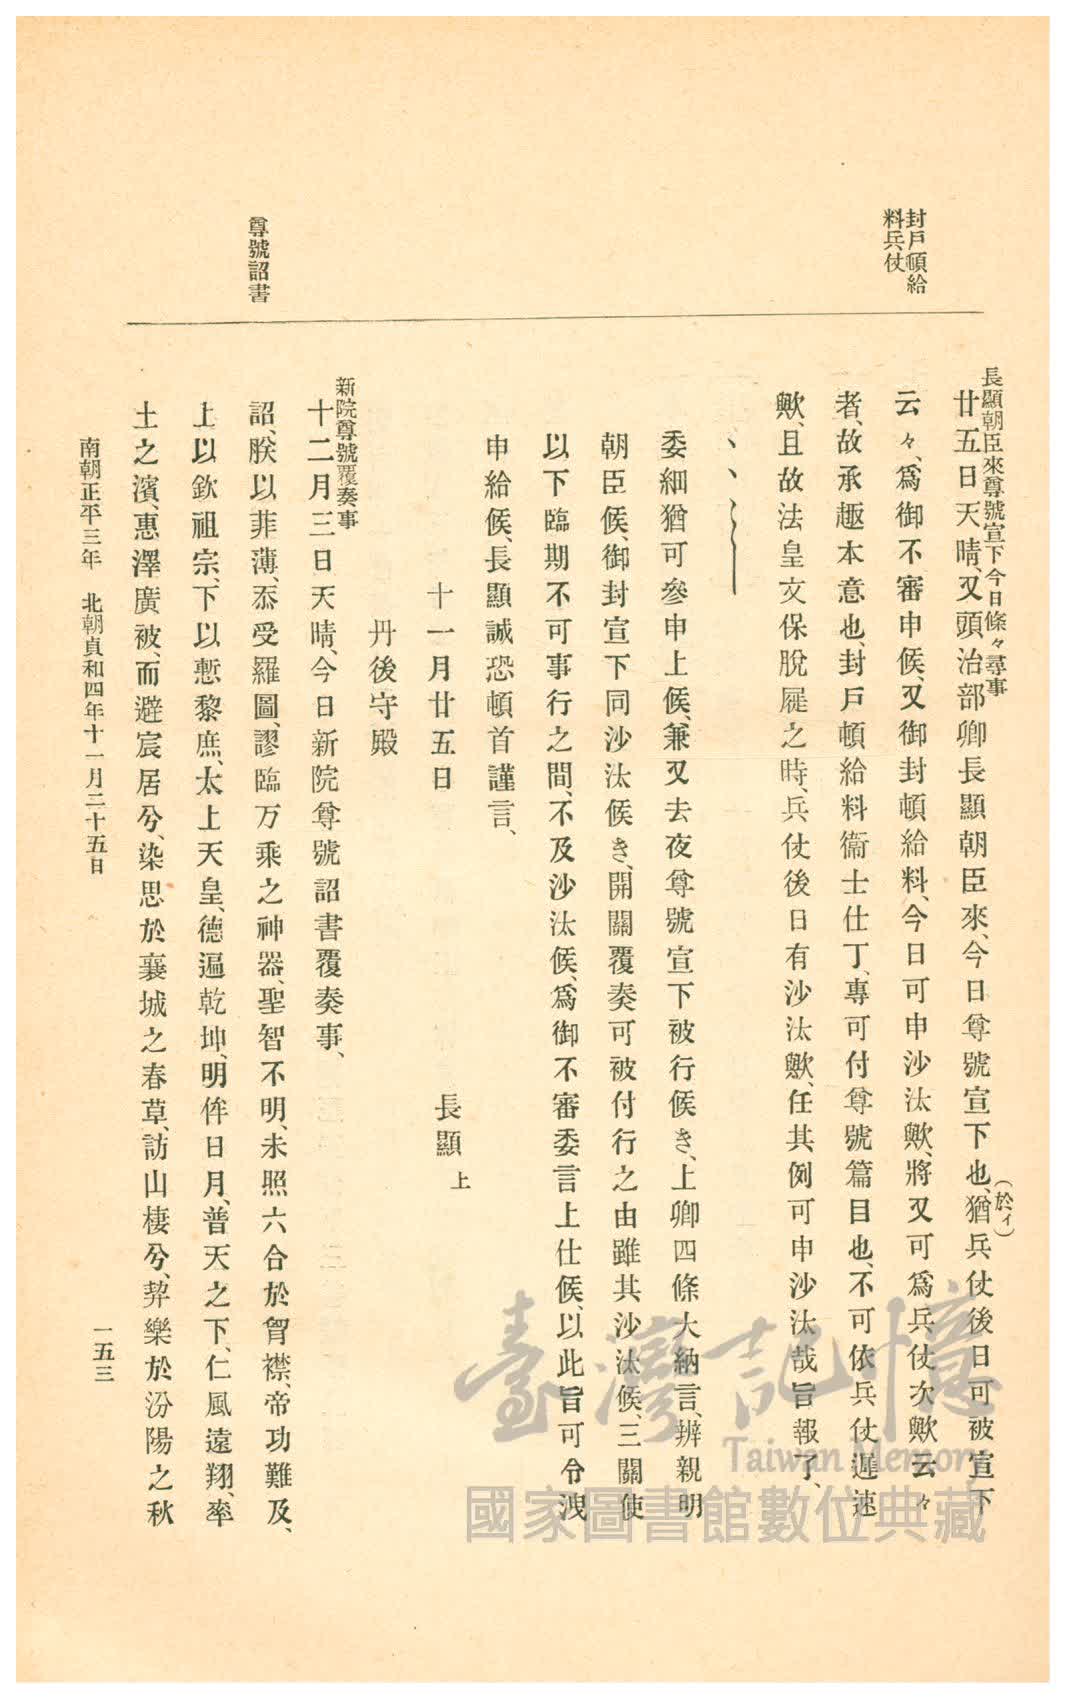 封戸頓給
料兵仗
尊號詔書
長顯朝臣來尊號宣下今日條々尋事
廿五日天晴、又頭治部卿長顯朝臣來、今日尊號宣下也、猶兵仗後日可被宣下
(於イ)
云々、爲御不審申候、又御封頓給料、今日可申沙汰歟、將又可爲兵仗次歟云々
者、故承趣本意也、封戸頓給料衞士仕丁、專可付尊號篇目也、不可依兵仗遲速
歟、且故法皇文保脫屣之時、兵仗後日有沙汰歟、任其例可申沙汰哉旨報了、
委細猶可參申上候、兼又去夜尊號宣下被行候き、上卿四條大納言、辨親明
朝臣候、御封宣下同沙汰候き、開關覆奏可被付行之由雖其沙汰候、三關使
以下臨期不可事行之間、不及沙汰候、爲御不審委言上仕候、以此旨可令洩
申給候、長顯誠恐頓首謹言、
十一月廿五日
長顯上
丹後守殿
新院尊號覆奏事
十二月三日天晴、今日新院尊號詔書覆奏事、
詔、朕以菲薄、忝受羅圖、謬臨万乘之神器、聖智不明、未照六合於胷襟、帝功難及、
上以欽祖宗、下以慙黎庶、太上天皇、德遍乾坤、明侔日月、普天之下、仁風遠翔、率
土之濱、惠澤廣被、而避宸居兮、染思於襄城之春草、訪山棲兮、契樂於汾陽之秋
南朝正平三年 北朝貞和四年十一月二十五日
一五三
臺灣記憶
Taiwan Memory
國家圖書館數位典藏